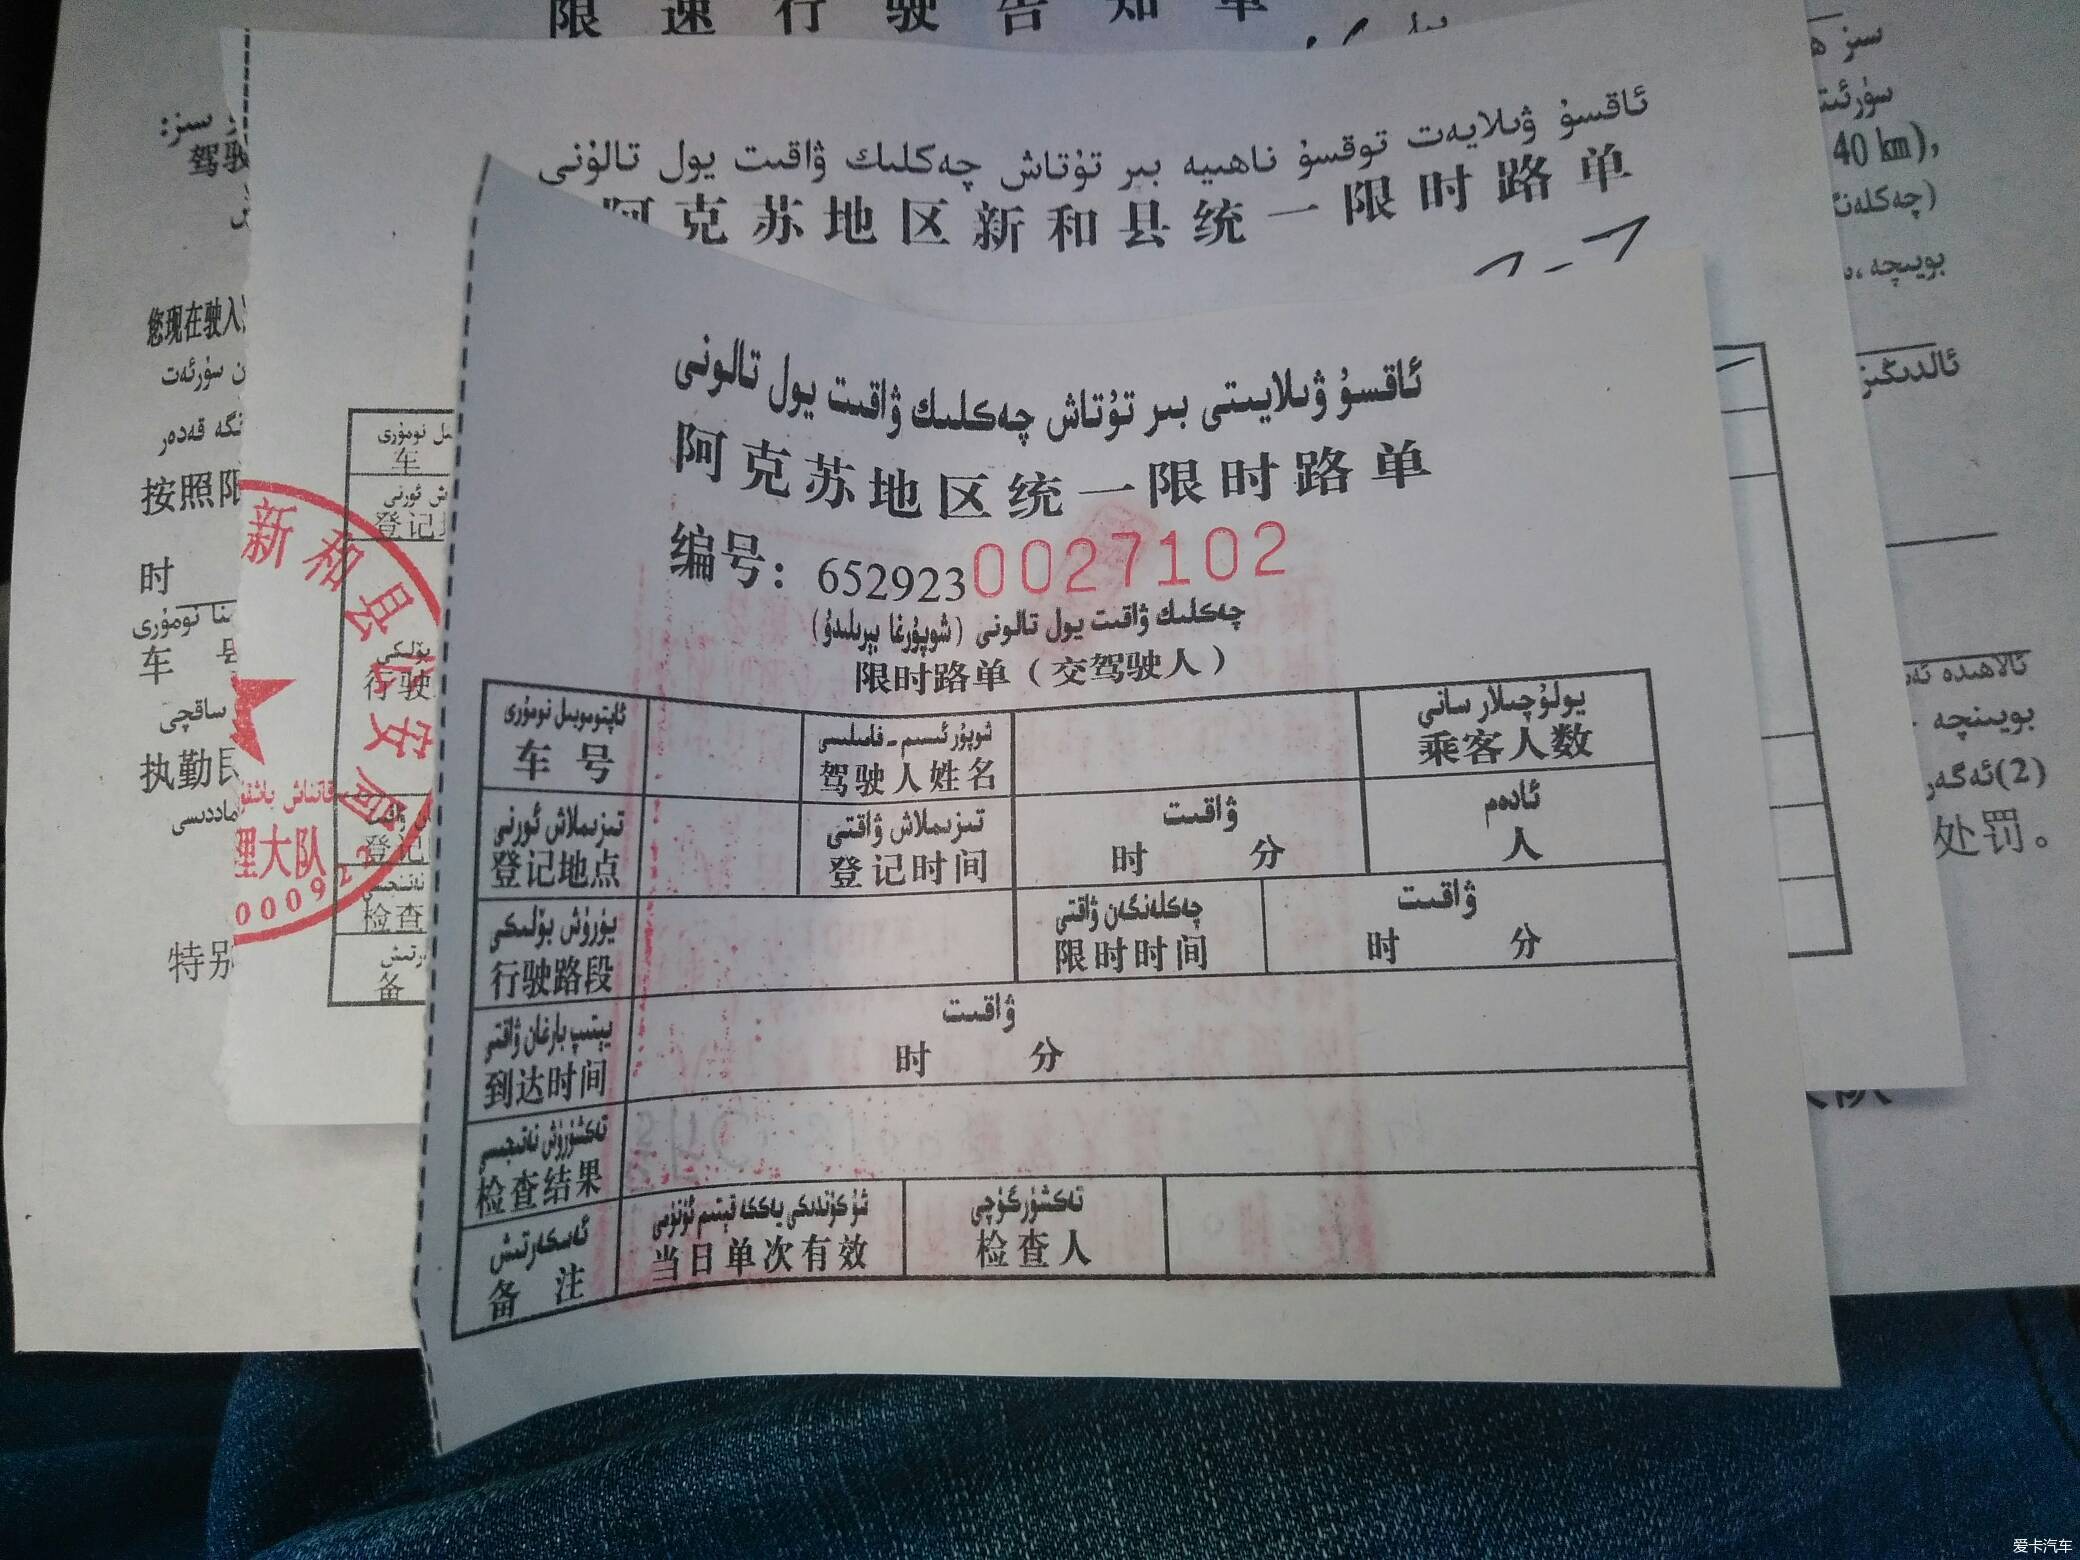 限速行驶告知单
سىز:
驾驶
您现在驶入
ن سۈرئەت
نگە قەدەر
按照限
时
نومۇرى
车
ساقچى
执勤民
ماددىسى
特别
سىز
سۈرئىت
40 km),
(چەكلەنگ
بويىچە،
ئالدىڭىز
ئالاھىدە ئە
بويىنچە
(2)ئەگەر
处罚。
ئاقسۇ ۋىلايەت توقسۇ ناھىيە بىر تۇتاش چەكلىك ۋاقىت يول تالۇنى
阿克苏地区新和县统一限时路单
نومۇرى
车
ش ئورنى
登记
بۆلىكى
行驶
登记
检查
备
新和县公安局
قاتناش باشقۇ
理大队
ئاقسۇ ۋىلايىتى بىر تۇتاش چەكلىك ۋاقىت يول تالونى
阿克苏地区统一限时路单
编号：6529230027102
چەكلىك ۋاقىت يول تالونى (شوپۇرغا بېرىلىدۇ)
限时路单（交驾驶人）
ئاپتوموبىل نومۇرى
车号
شوپۇر ئىسىم-فامىلىسى
驾驶人姓名
يولۇچىلار سانى
乘客人数
تىزىملاش ئورنى
登记地点
تىزىملاش ۋاقتى
登记时间
ۋاقىت
时 分
ئادەم
人
يۈرۈش بۆلىكى
行驶路段
چەكلەنگەن ۋاقتى
限时时间
ۋاقىت
时 分
يېتىپ بارغان ۋاقتى
到达时间
ۋاقىت
时 分
تەكشۈرۈش نەتىجىسى
检查结果
ئەسكەرتىش
备注
شۇ كۈندىكى يەككە قېتىم ئۈنۈمى
当日单次有效
تەكشۈرگۈچى
检查人
爱卡汽车